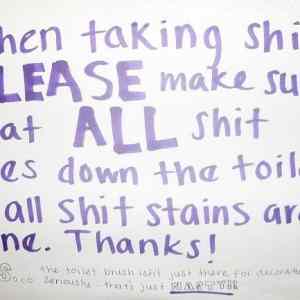 hen taking shi
LEASE make su
at ALL shit
es down the toile
all shit stains are
ne. Thanks!
the toilet brush isn't just there for decorati
Seriously - that's just NASTY!!